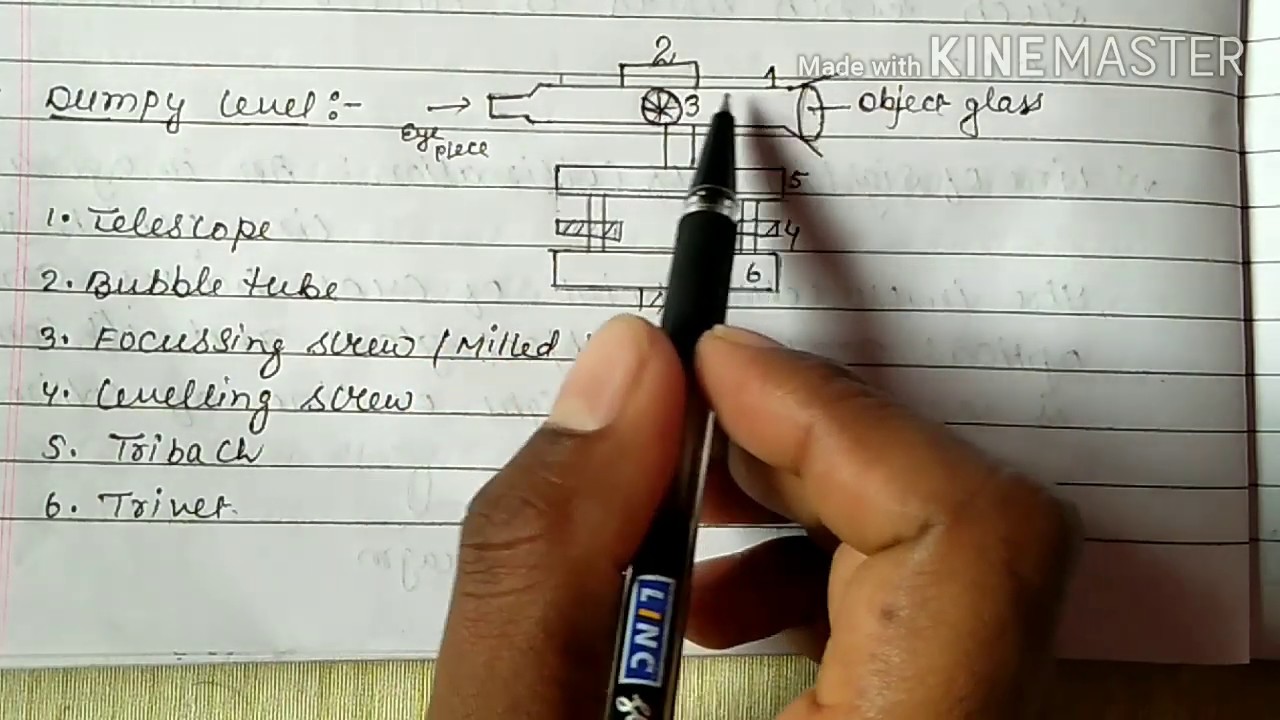 Made with KINEMASTER
2
1
Dumpy level :-
→
3
object glass
Eye
piece
5
1. Telescope
4
2. Bubble tube
6
3. Focussing screw / Milled
4. Levelling screw
5. Tribach
6. Trivet.
LINC